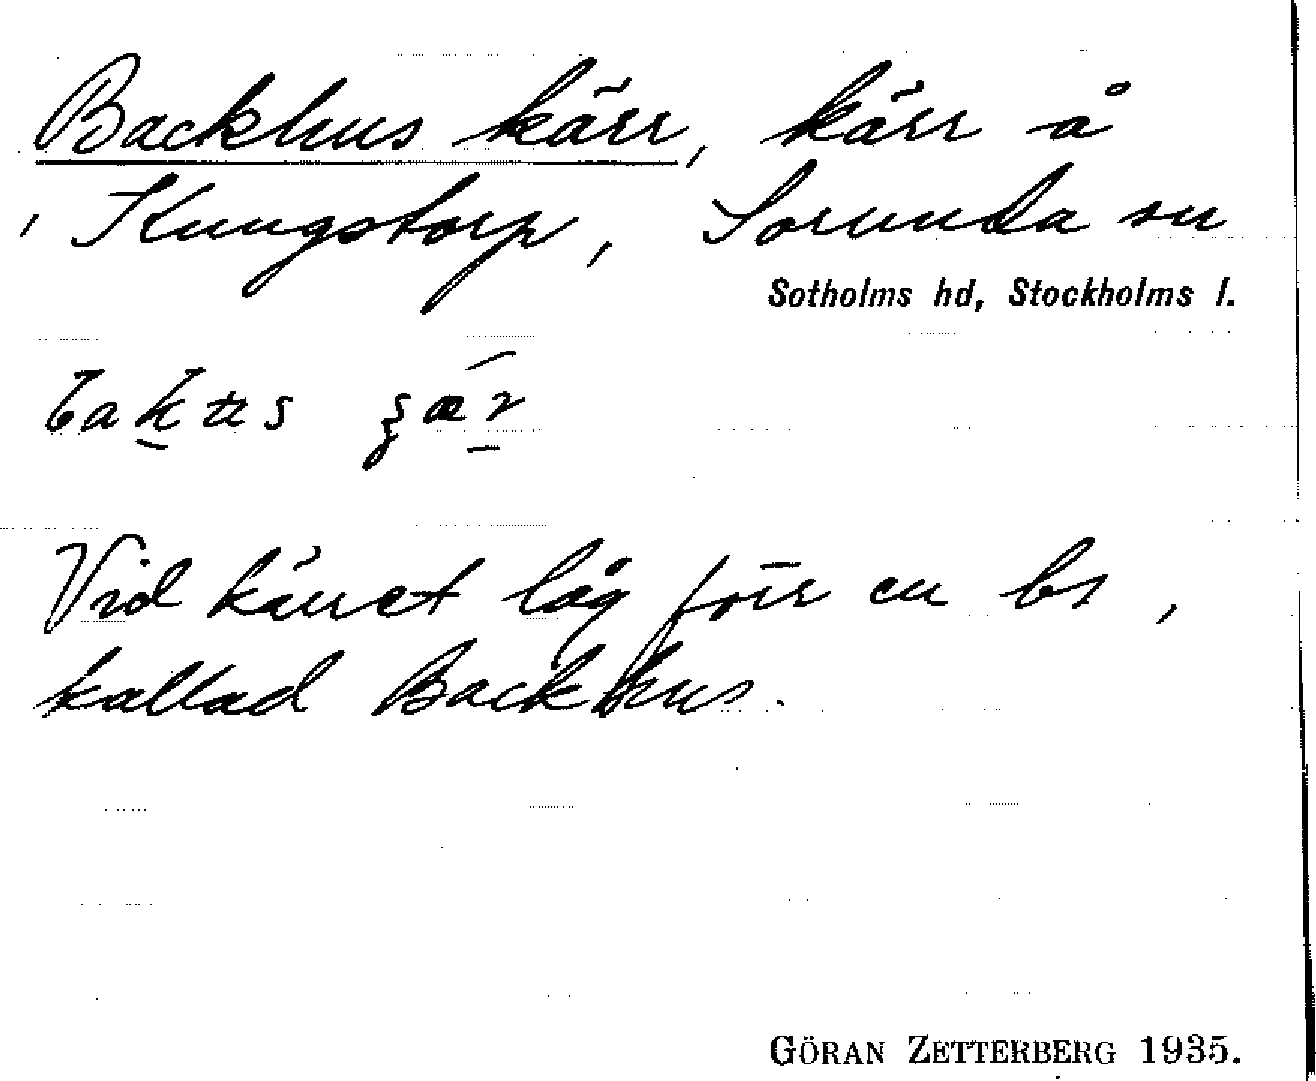 Backhus kärr, kärr å
Kungstorp, Sorunda sn
Sotholms hd, Stockholms l.
Vid kärret låg förr en bs,
kallad Backhus.
GÖRAN ZETTERBERG 1935.